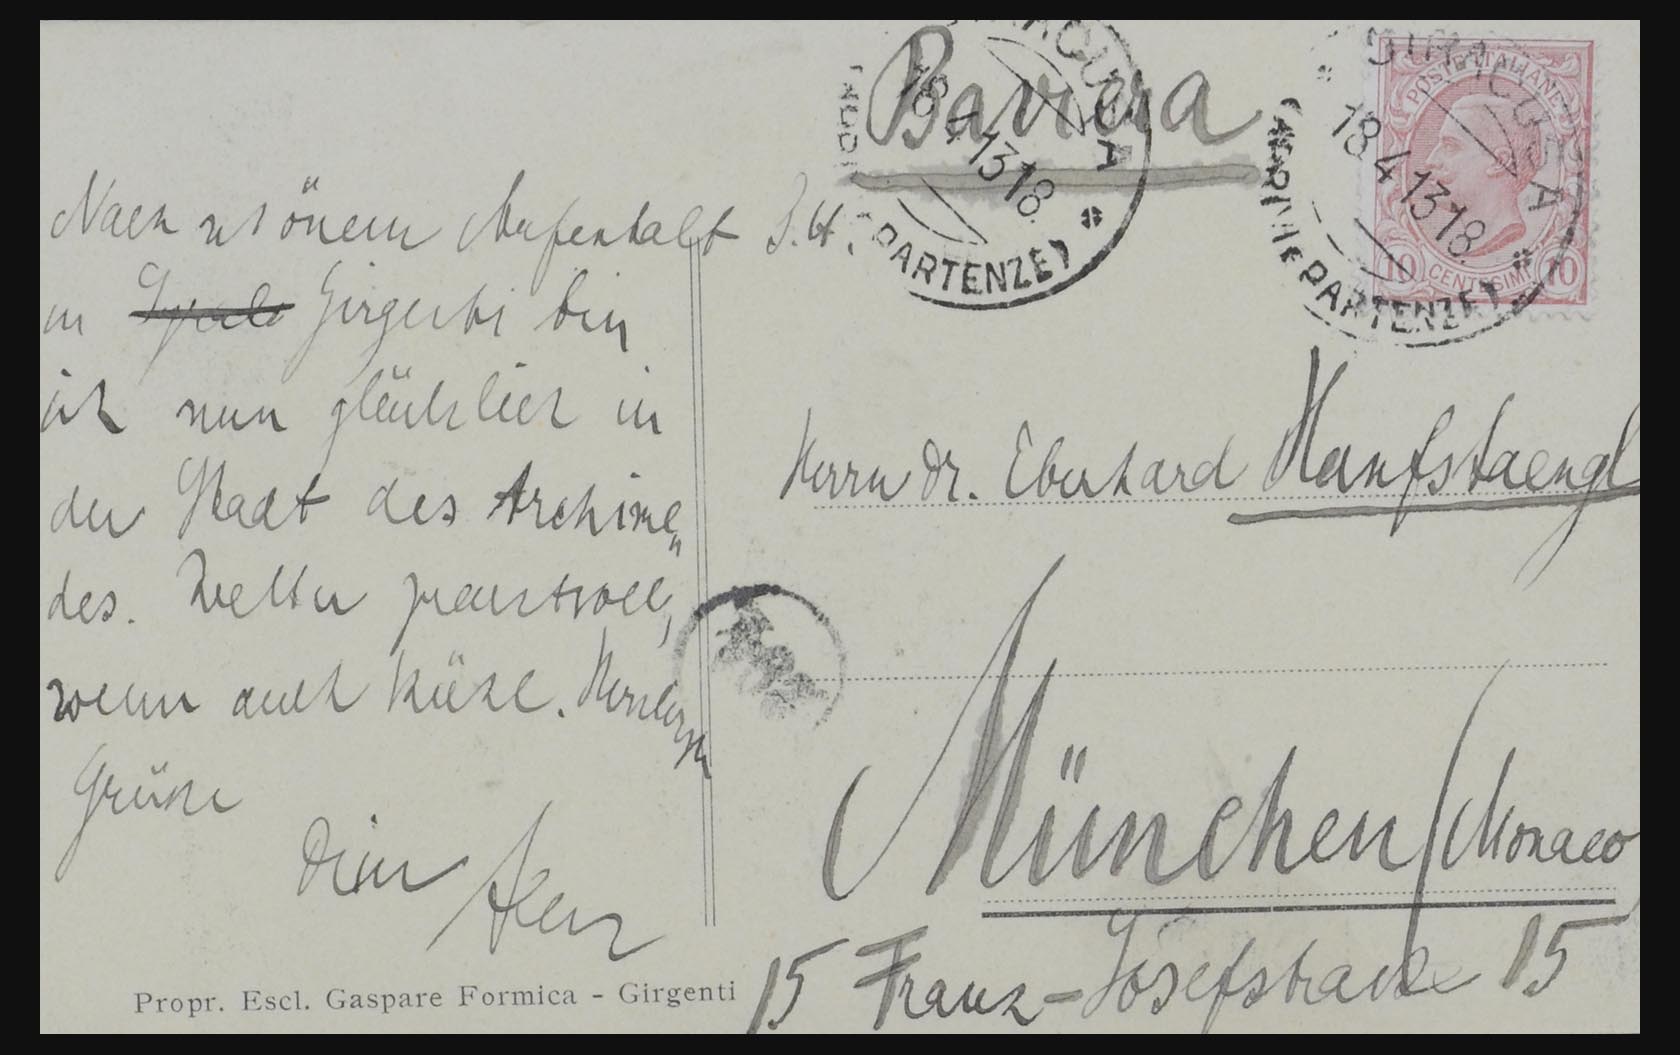 Nach schönem Aufenthalt
in Girgenti bin
ich nun glücklich in
der Stadt des Archime„
des. Wetter prachtvoll,
wenn auch kühl. Herzlichen
Grüsse
Dein
Propr. Escl. Gaspare Formica - Girgenti
Baviera
SIRACUSA
18 4 13 18
(ARRIVI E PARTENZE)
POSTE ITALIANE
10 CENTESIMI 10
SIRACUSA
18 4 13 18
(ARRIVI E PARTENZE)
Herrn Dr. Eberhard Hanfstaengl
München / Monaco
15 Franz-Josefstrasse 15